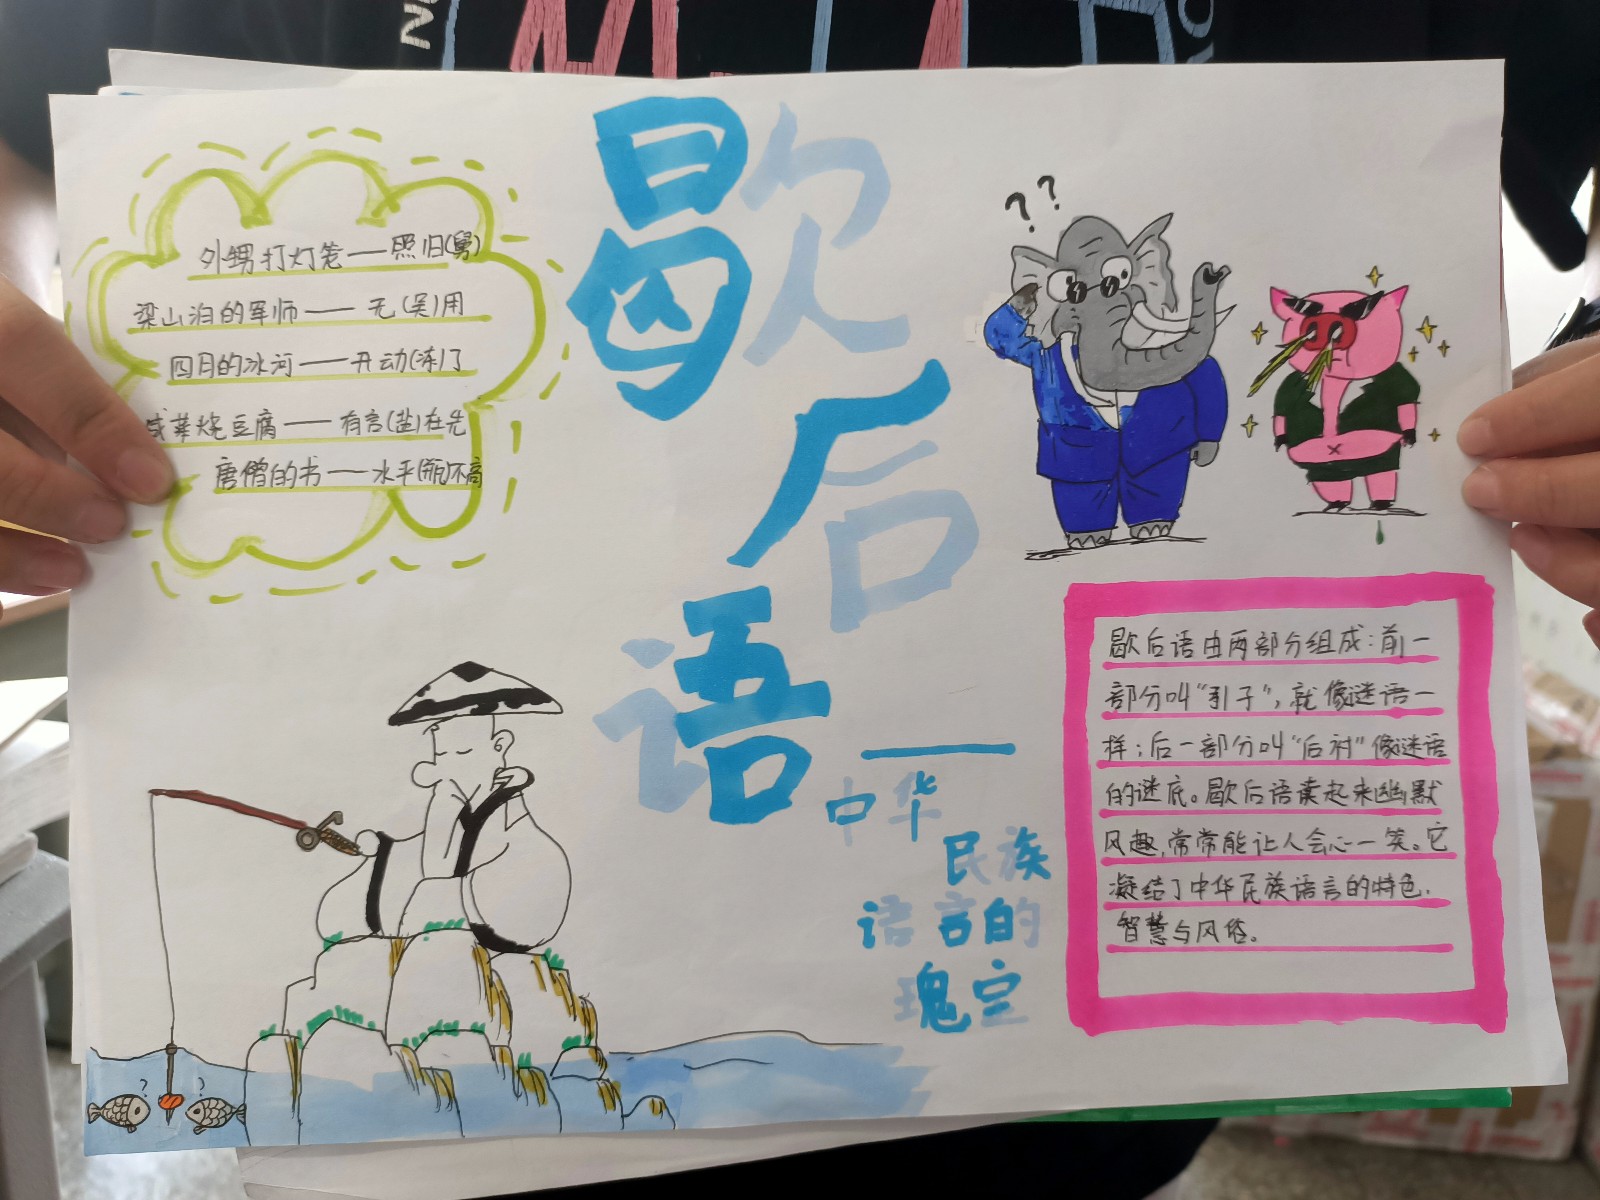 歇后语
——中华
民族
语言的
瑰宝
外甥打灯笼——照旧(舅)
梁山泊的军师——无(吴)用
四月的冰河——开动(冻)了
咸菜烧豆腐——有言(盐)在先
唐僧的书——水平(瓶)不高
? ?
? ?
歇后语由两部分组成:前一
部分叫“引子”,就像谜语一
样;后一部分叫“后衬”像谜语
的谜底。歇后语读起来幽默
风趣,常常能让人会心一笑。它
凝结了中华民族语言的特色.
智慧与风俗。